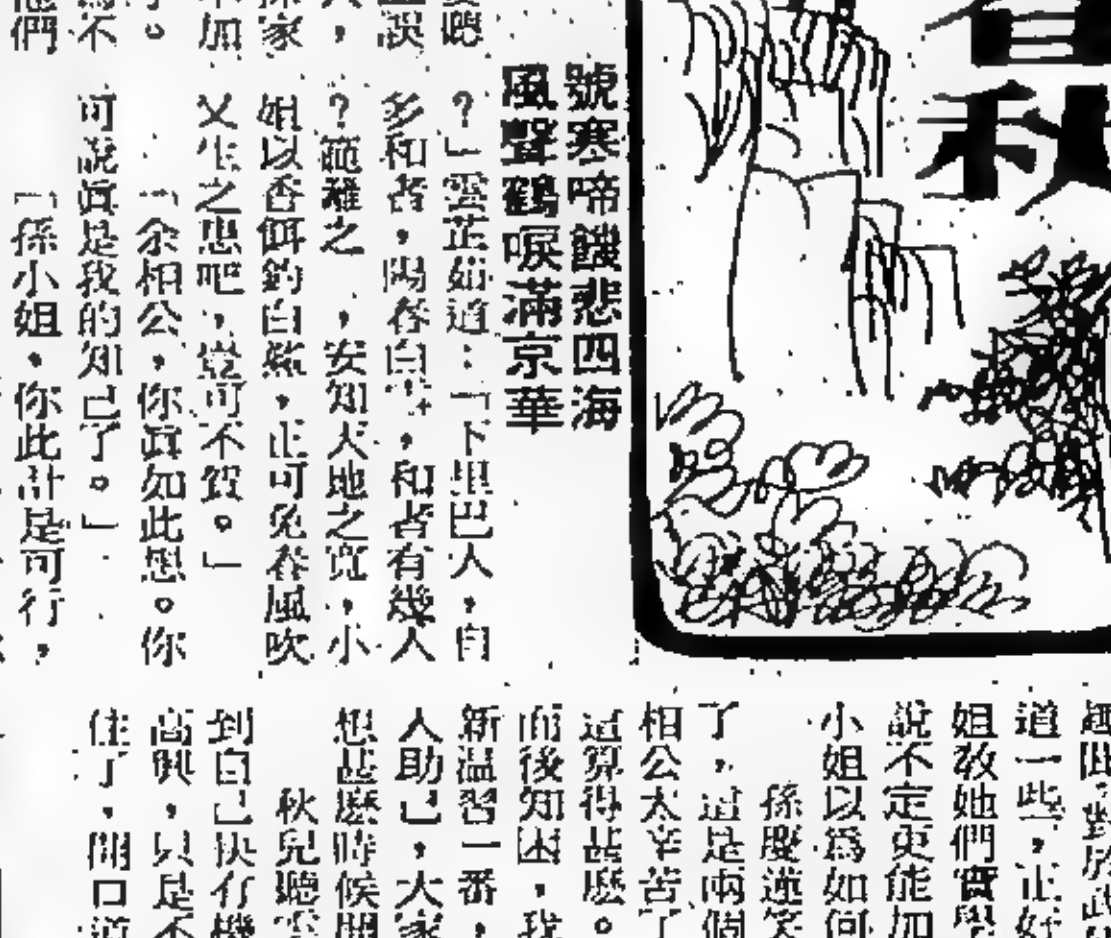 秋
號寒啼饑悲四海
風聲鶴唳滿京華
?」雲芷茹道:「下里巴人,自
多和者,陽春白雪,和者有幾人
?範離之,安知天地之寬,小
姐以香餌釣白鯀,正可免春風吹
又生之患吧,豈可不賀。」
「余相公,你眞如此想。你
可說眞是我的知己了。」
「孫小姐,你此計是可行,
道一些,正好
姐敎她們實學
說不定更能加
小姐以爲如何
孫慶蓮笑
了,這是兩個
相公太辛苦了
這算得甚麽。
而後知困,我
新温習一番,
人助己,大家
想甚麽時候開
秋兒聽
到自己快有機
高興,只是不
住了,開口道